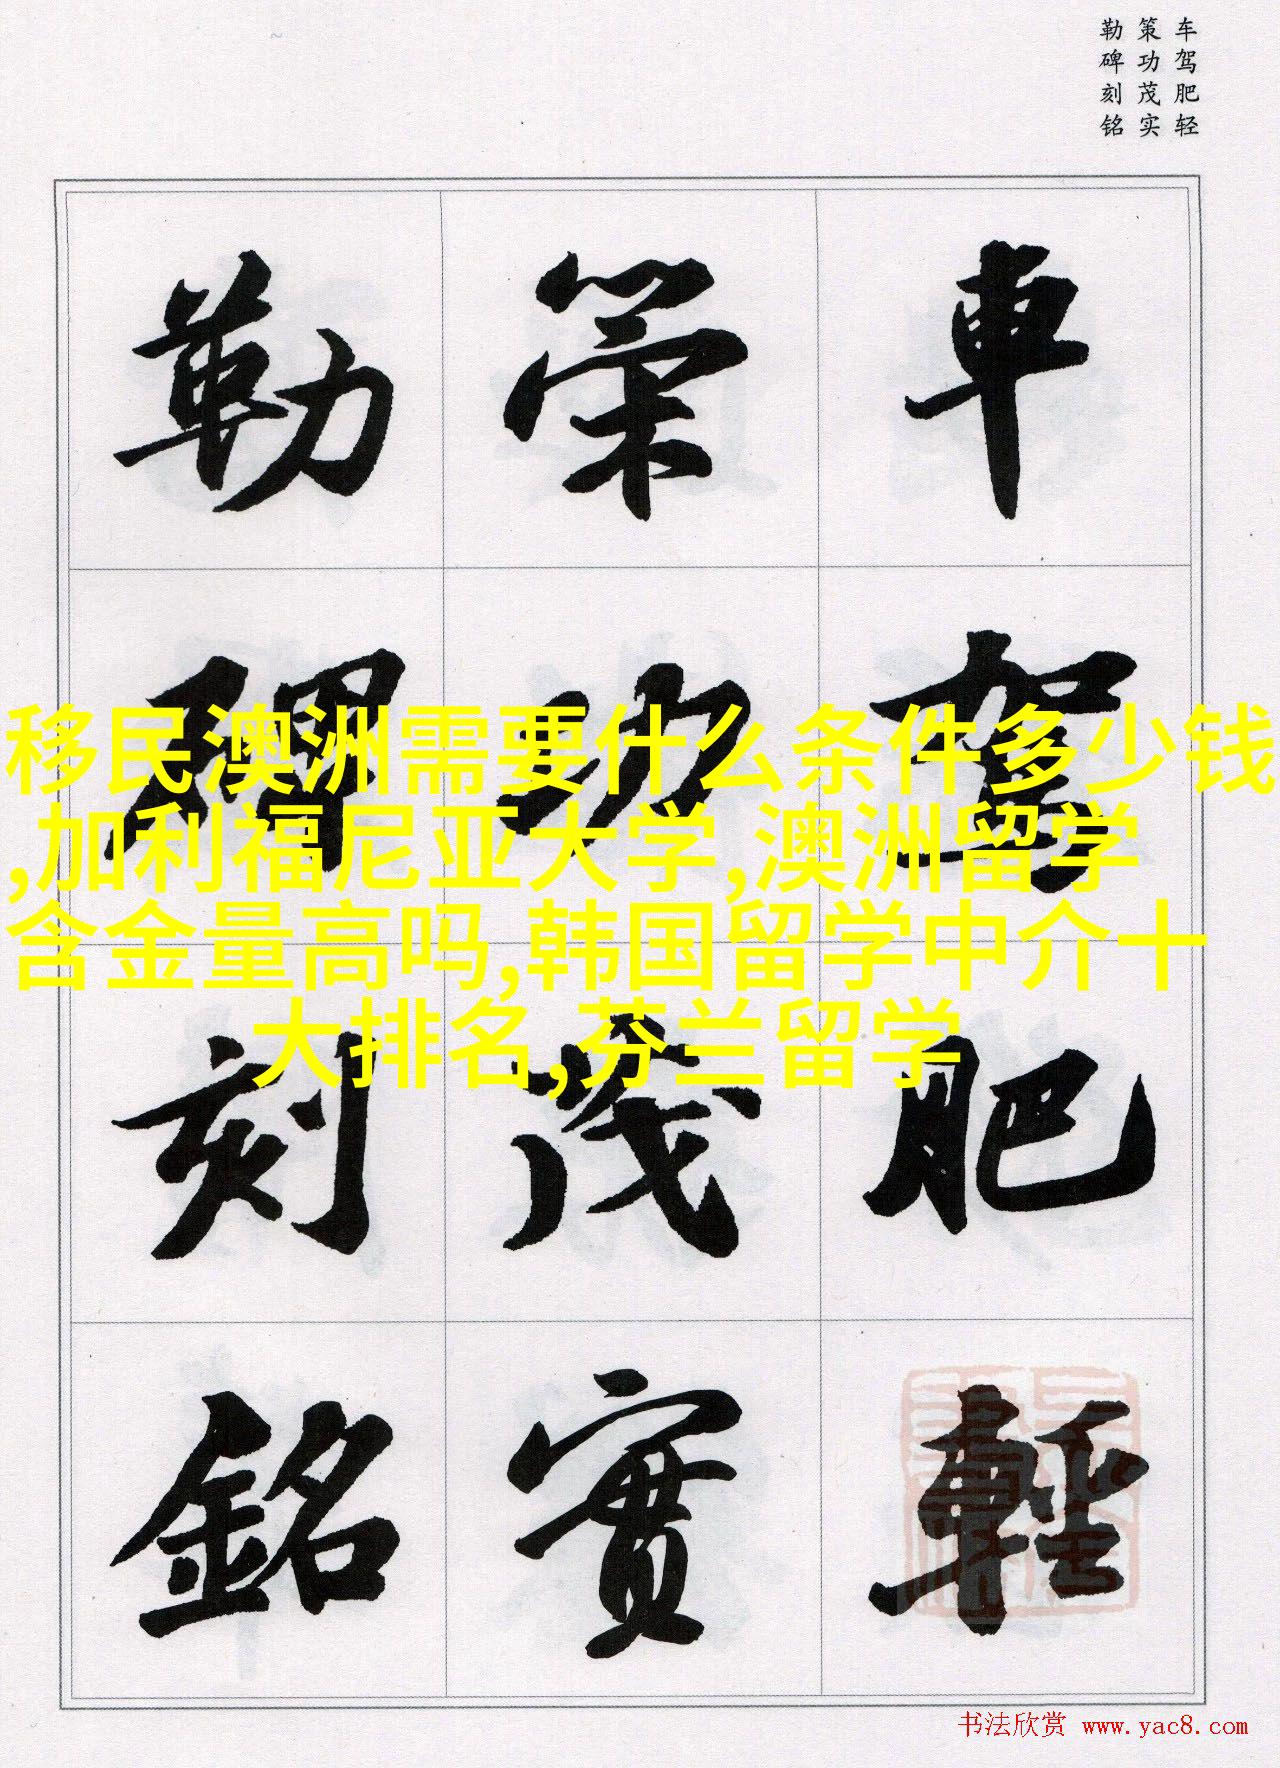 车驾肥轻
策功茂实
勒碑刻铭
車駕肥輕
策功茂實
勒碑刻銘
移民澳洲需要什么条件多少钱
,加利福尼亚大学,澳洲留学
含金量高吗,韩国留学中介十
大排名,芬兰留学
书法欣赏 www.yac8.com